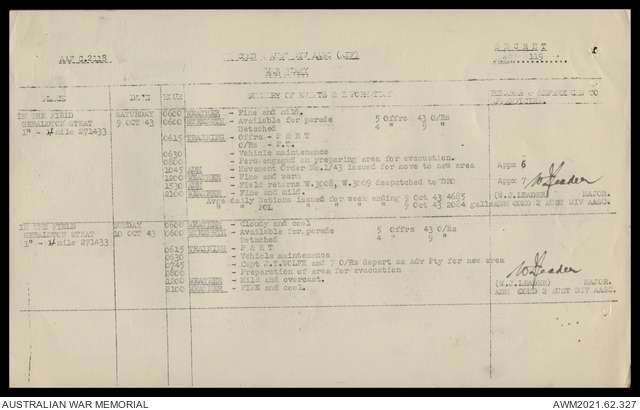 AAF C.2118
2 AUST DIV AASC (AIF)
S E C R E T
119
WAR DIARY
PLACE DATE HOUR SUMMARY OF EVENTS & INFORMATION REMARKS & REFERENCES TO APPENDICES
IN THE FIELD SATURDAY 0600 WEATHER - Fine and mild.
GERALDTON STRAT 9 OCT 43 0600 - Available for parade 5 Offrs 43 O/Rs
1" - ¼ mile 271433 Detached 4 " 9 "
0615 TRAINING - Offrs - P & RT
O/Rs - P.T.
0630 - Vehicle maintenance
0800 - Pers engaged on preparing area for evacuation.
1045 ADM - Movement Order No.1/43 issued for move to new area Appx 6
1200 WEATHER - Fine and warm
1530 ADM - Field returns W.3008, W.3009 despatched to DRO Appx 7 W Leader
2100 WEATHER - Fine and mild. (W.J.LEADER) MAJOR.
Avge daily Rations issued for week ending 9 Oct 43 4685 ADM COMD 2 AUST DIV AASC.
" " POL " " " " 9 Oct 43 2084 galls
IN THE FIELD SUNDAY 0600 WEATHER - Cloudy and cool
GERALDTON STRAT 10 OCT 43 0600 - Available for parade 5 Offrs 43 O/Rs
1" - ¼ mile 271433 Detached 4 " 9 "
0615 TRAINING - P & RT
0630 - Vehicle maintenance
0745 - Capt J.T.WOLFE and 7 O/Rs depart as Adv Pty for new area
0800 - Preparation of area for evacuation W Leader
1200 WEATHER - Mild and overcast. (W.J.LEADER) MAJOR.
2100 WEATHER - FINE and cool. ADM COMD 2 AUST DIV AASC.
AUSTRALIAN WAR MEMORIAL
AWM2021.62.327